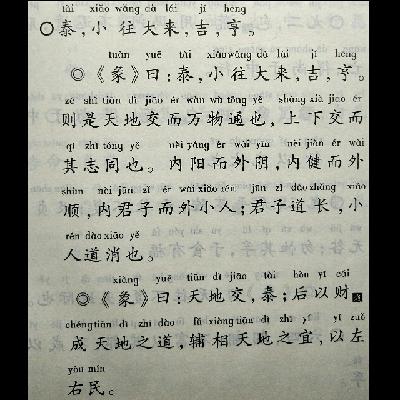 tài xiǎo wǎng dà lái jí hēng
◎泰,小往大来,吉,亨。
tuàn yuē tài xiǎo wǎng dà lái jí hēng
◎《彖》曰:泰,小往大来,吉,亨。
zé shì tiān dì jiāo ér wàn wù tōng yě shàng xià jiāo ér
则是天地交而万物通也,上下交而
qí zhì tóng yě nèi yáng ér wài yīn nèi jiàn ér wài
其志同也。内阳而外阴,内健而外
shùn nèi jūn zǐ ér wài xiǎo rén jūn zǐ dào zhǎng xiǎo
顺,内君子而外小人;君子道长,小
rén dào xiāo yě
人道消也。
xiàng yuē tiān dì jiāo tài hòu yǐ cái
◎《象》曰:天地交,泰;后以财
chéng tiān dì zhī dào fǔ xiàng tiān dì zhī yí yǐ zuǒ
成天地之道,辅相天地之宜,以左
yòu mín
右民。